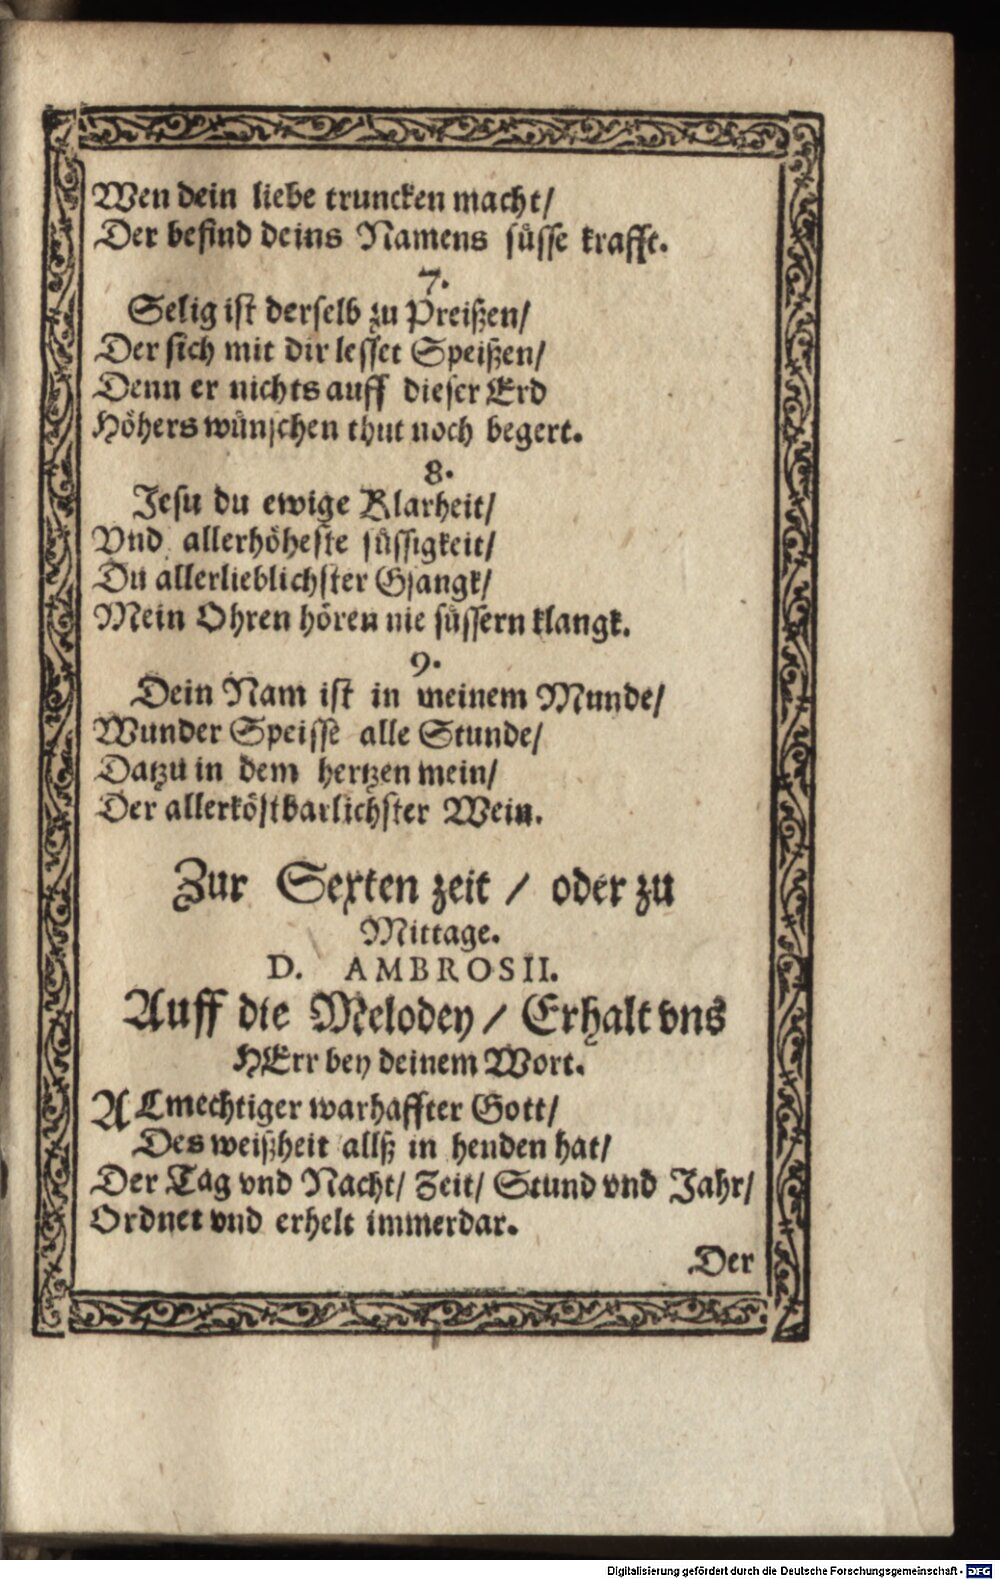 Wen dein liebe truncken macht/
Der befind deins Namens süsse krafft.
7.
Selig ist derselb zu Preißen/
Der sich mit dir lesset Speißen/
Denn er nichts auff dieser Erd
Höhers wünschen thut noch begert.
8.
Jesu du ewige Klarheit/
Vnd allerhöheste süssigkeit/
Du allerlieblichster Gsangk/
Mein Ohren hören nie süssern klangk.
9.
Dein Nam ist in meinem Munde/
Wunder Speisse alle Stunde/
Datzu in dem hertzen mein/
Der allerköstbarlichster Wein.
Zur Sexten zeit / oder zu
Mittage.
D. AMBROSII.
Auff die Melodey / Erhalt vns
HErr bey deinem Wort.
ALmechtiger warhaffter Gott/
Des weißheit allß in henden hat/
Der Tag vnd Nacht/ Zeit/ Stund vnd Jahr/
Ordnet vnd erhelt immerdar.
Der
Digitalisierung gefördert durch die Deutsche Forschungsgemeinschaft - DFG